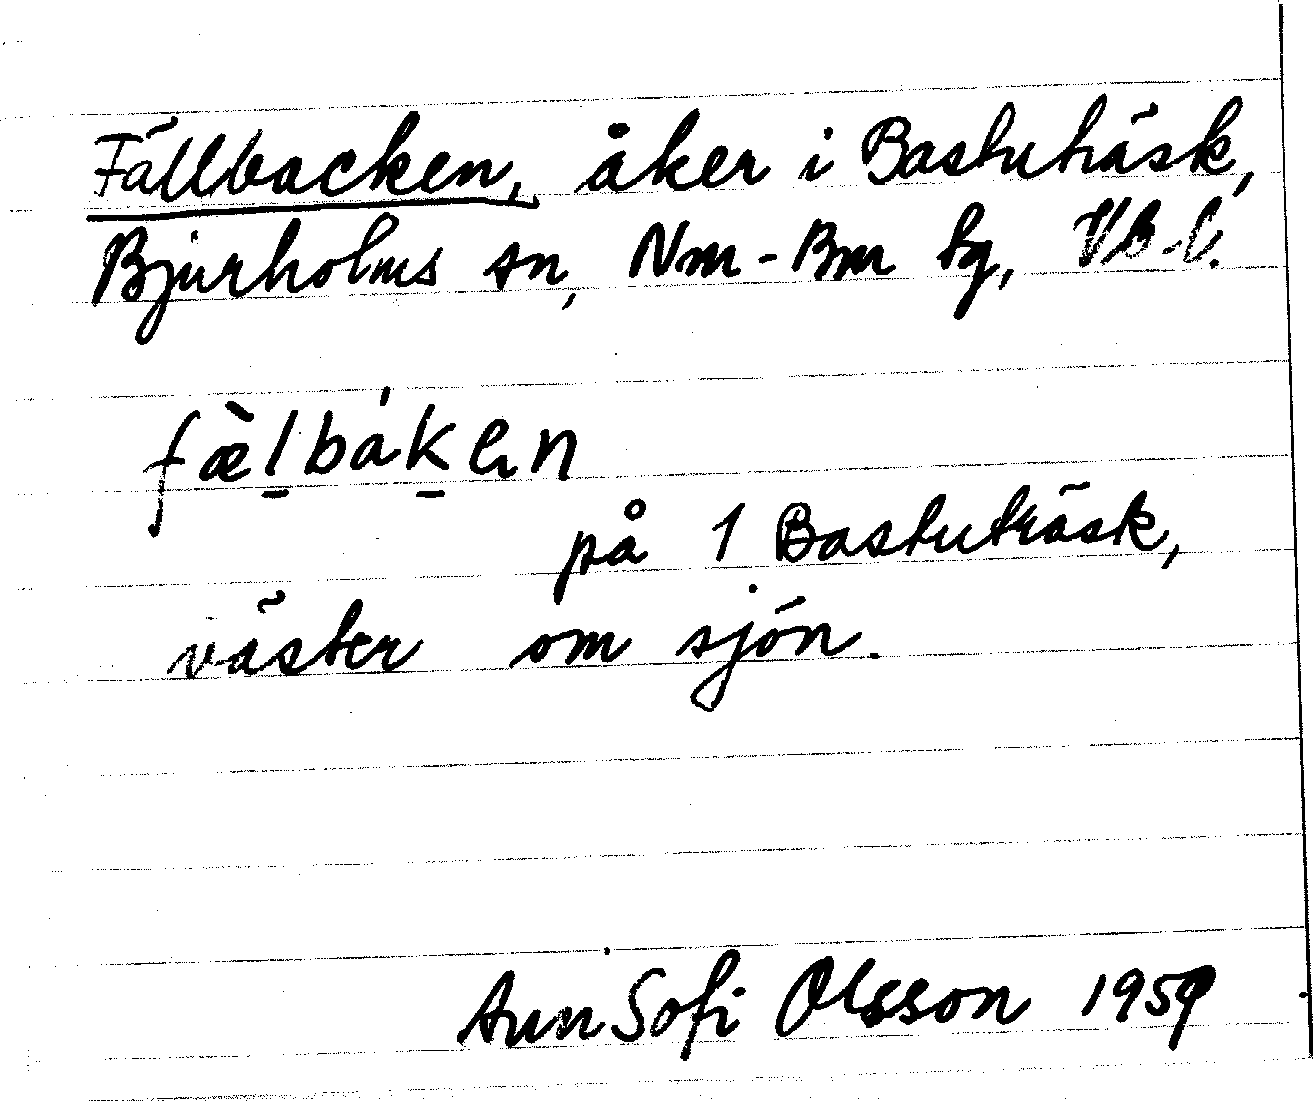 Fällbacken, åker i Bastuträsk,
Bjurholms sn, Nm-Bm tg, VB-l.
fæ̀l̲bák̲en
på 1 Bastuträsk,
väster om sjön.
Ann Sofi Olsson 1959